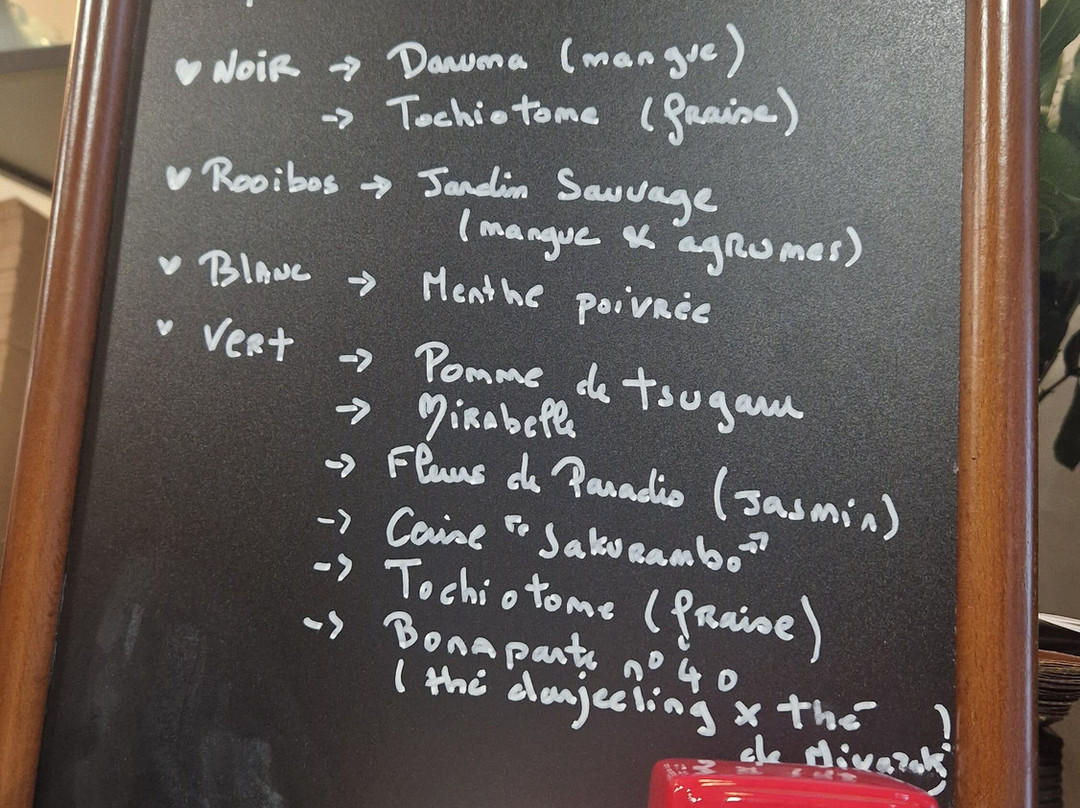 ♥ NOIR → Daruma (mangue)
→ Tochiotome (fraise)
♥ Rooibos → Jardin Sauvage
(mangue & agrumes)
♥ BLANC → Menthe poivrée
♥ Vert → Pomme de tsugaru
→ Mirabelle
→ Fleurs de Paradis (Jasmin)
→ Cerise "Sakurambo"
→ Tochiotome (fraise)
→ Bonaparte n° 40
(thé darjeeling x thé
de Miyazaki)